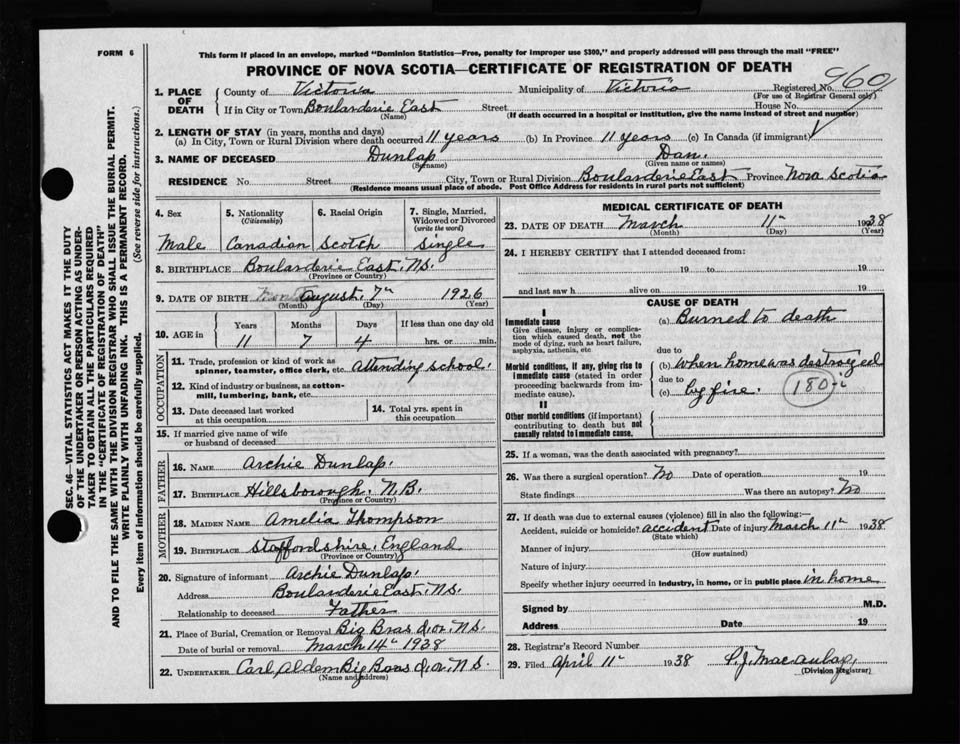 FORM 6
This form if placed in an envelope, marked "Dominion Statistics—Free, penalty for improper use $300," and properly addressed will pass through the mail "FREE"
PROVINCE OF NOVA SCOTIA—CERTIFICATE OF REGISTRATION OF DEATH
960
1. PLACE OF DEATH County of Victoria Municipality of Victoria Registered No.
(For use of Registrar General only)
If in City or Town Boularderie East Street House No.
(Name) (If death occurred in a hospital or institution, give the name instead of street and number)
2. LENGTH OF STAY (in years, months and days)
(a) In City, Town or Rural Division where death occurred 11 years (b) In Province 11 years (c) In Canada (if immigrant)
3. NAME OF DECEASED Dunlap Dan.
(Surname) (Given name or names)
RESIDENCE No. Street City, Town or Rural Division Boularderie East Province Nova Scotia
(Residence means usual place of abode. Post Office Address for residents in rural parts not sufficient)
4. Sex 5. Nationality (Citizenship) 6. Racial Origin 7. Single, Married, Widowed or Divorced (write the word)
Male Canadian Scotch Single
8. BIRTHPLACE Boularderie East. N.S.
(Province or Country)
9. DATE OF BIRTH August. 7th 1926
(Month) (Day) (Year)
10. AGE in Years Months Days If less than one day old
11 7 4 hrs. or min.
OCCUPATION
11. Trade, profession or kind of work as spinner, teamster, office clerk, etc. Attending school.
12. Kind of industry or business, as cotton-mill, lumbering, bank, etc.
13. Date deceased last worked at this occupation
14. Total yrs. spent in this occupation
15. If married give name of wife or husband of deceased
FATHER
16. NAME Archie Dunlap.
17. BIRTHPLACE Hillsborough. N.B.
(Province or Country)
MOTHER
18. MAIDEN NAME Amelia Thompson
19. BIRTHPLACE Staffordshire. England
(Province or Country)
20. Signature of informant Archie Dunlap.
Address Boularderie East. N.S.
Relationship to deceased Father
21. Place of Burial, Cremation or Removal Big Bras d'or. N.S.
Date of burial or removal March 14th 1938
22. UNDERTAKER Carl Aldem Big Bras d'or. N.S.
(Name and address)
MEDICAL CERTIFICATE OF DEATH
23. DATE OF DEATH March 11th 1938
(Month) (Day) (Year)
24. I HEREBY CERTIFY that I attended deceased from:
19 to 19
and last saw h alive on 19
CAUSE OF DEATH
I
Immediate cause
Give disease, injury or complication which caused death, not the mode of dying, such as heart failure, asphyxia, asthenia, etc
(a) Burned to death
due to
Morbid conditions, if any, giving rise to immediate cause (stated in order proceeding backwards from immediate cause).
(b) When home was destroyed
due to
(c) by fire.
180
II
Other morbid conditions (if important) contributing to death but not causally related to immediate cause.
25. If a woman, was the death associated with pregnancy?
26. Was there a surgical operation? No Date of operation 19
State findings Was there an autopsy? No
27. If death was due to external causes (violence) fill in also the following:—
Accident, suicide or homicide? accident Date of injury March 11th 1938
(State which)
Manner of injury
(How sustained)
Nature of injury
Specify whether injury occurred in industry, in home, or in public place in home
Signed by M.D.
Address Date 19
28. Registrar's Record Number
29. Filed April 11th 1938
(Division Registrar)
SEC. 46—VITAL STATISTICS ACT MAKES IT THE DUTY
OF THE UNDERTAKER OR PERSON ACTING AS UNDER-
TAKER TO OBTAIN ALL THE PARTICULARS REQUIRED
IN THE "CERTIFICATE OF REGISTRATION OF DEATH"
AND TO FILE THE SAME WITH THE DIVISION REGISTRAR WHO SHALL ISSUE THE BURIAL PERMIT.
WRITE PLAINLY WITH UNFADING INK. THIS IS A PERMANENT RECORD.
Every item of information should be carefully supplied. (See reverse side for instructions.)